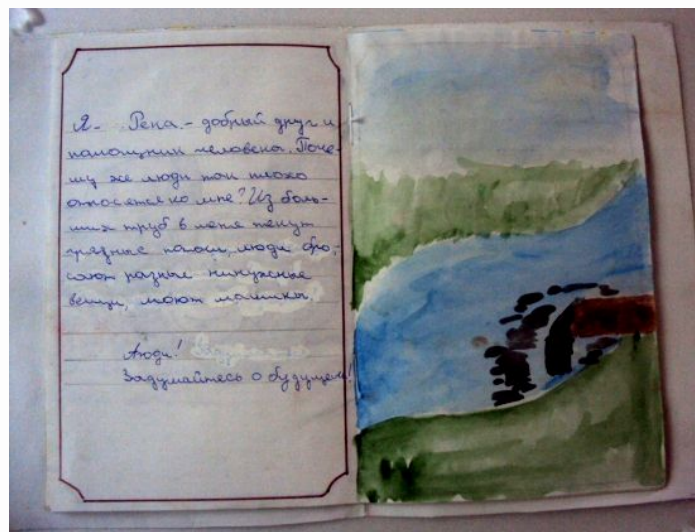 Я - Река - добрый друг и
помощник человека. Поче-
му же люди так плохо
относятся ко мне? Из боль-
ших труб в меня текут
грязные потоки, люди бро-
сают разные ненужные
вещи, моют машины.
Люди!
Задумайтесь о будущем!